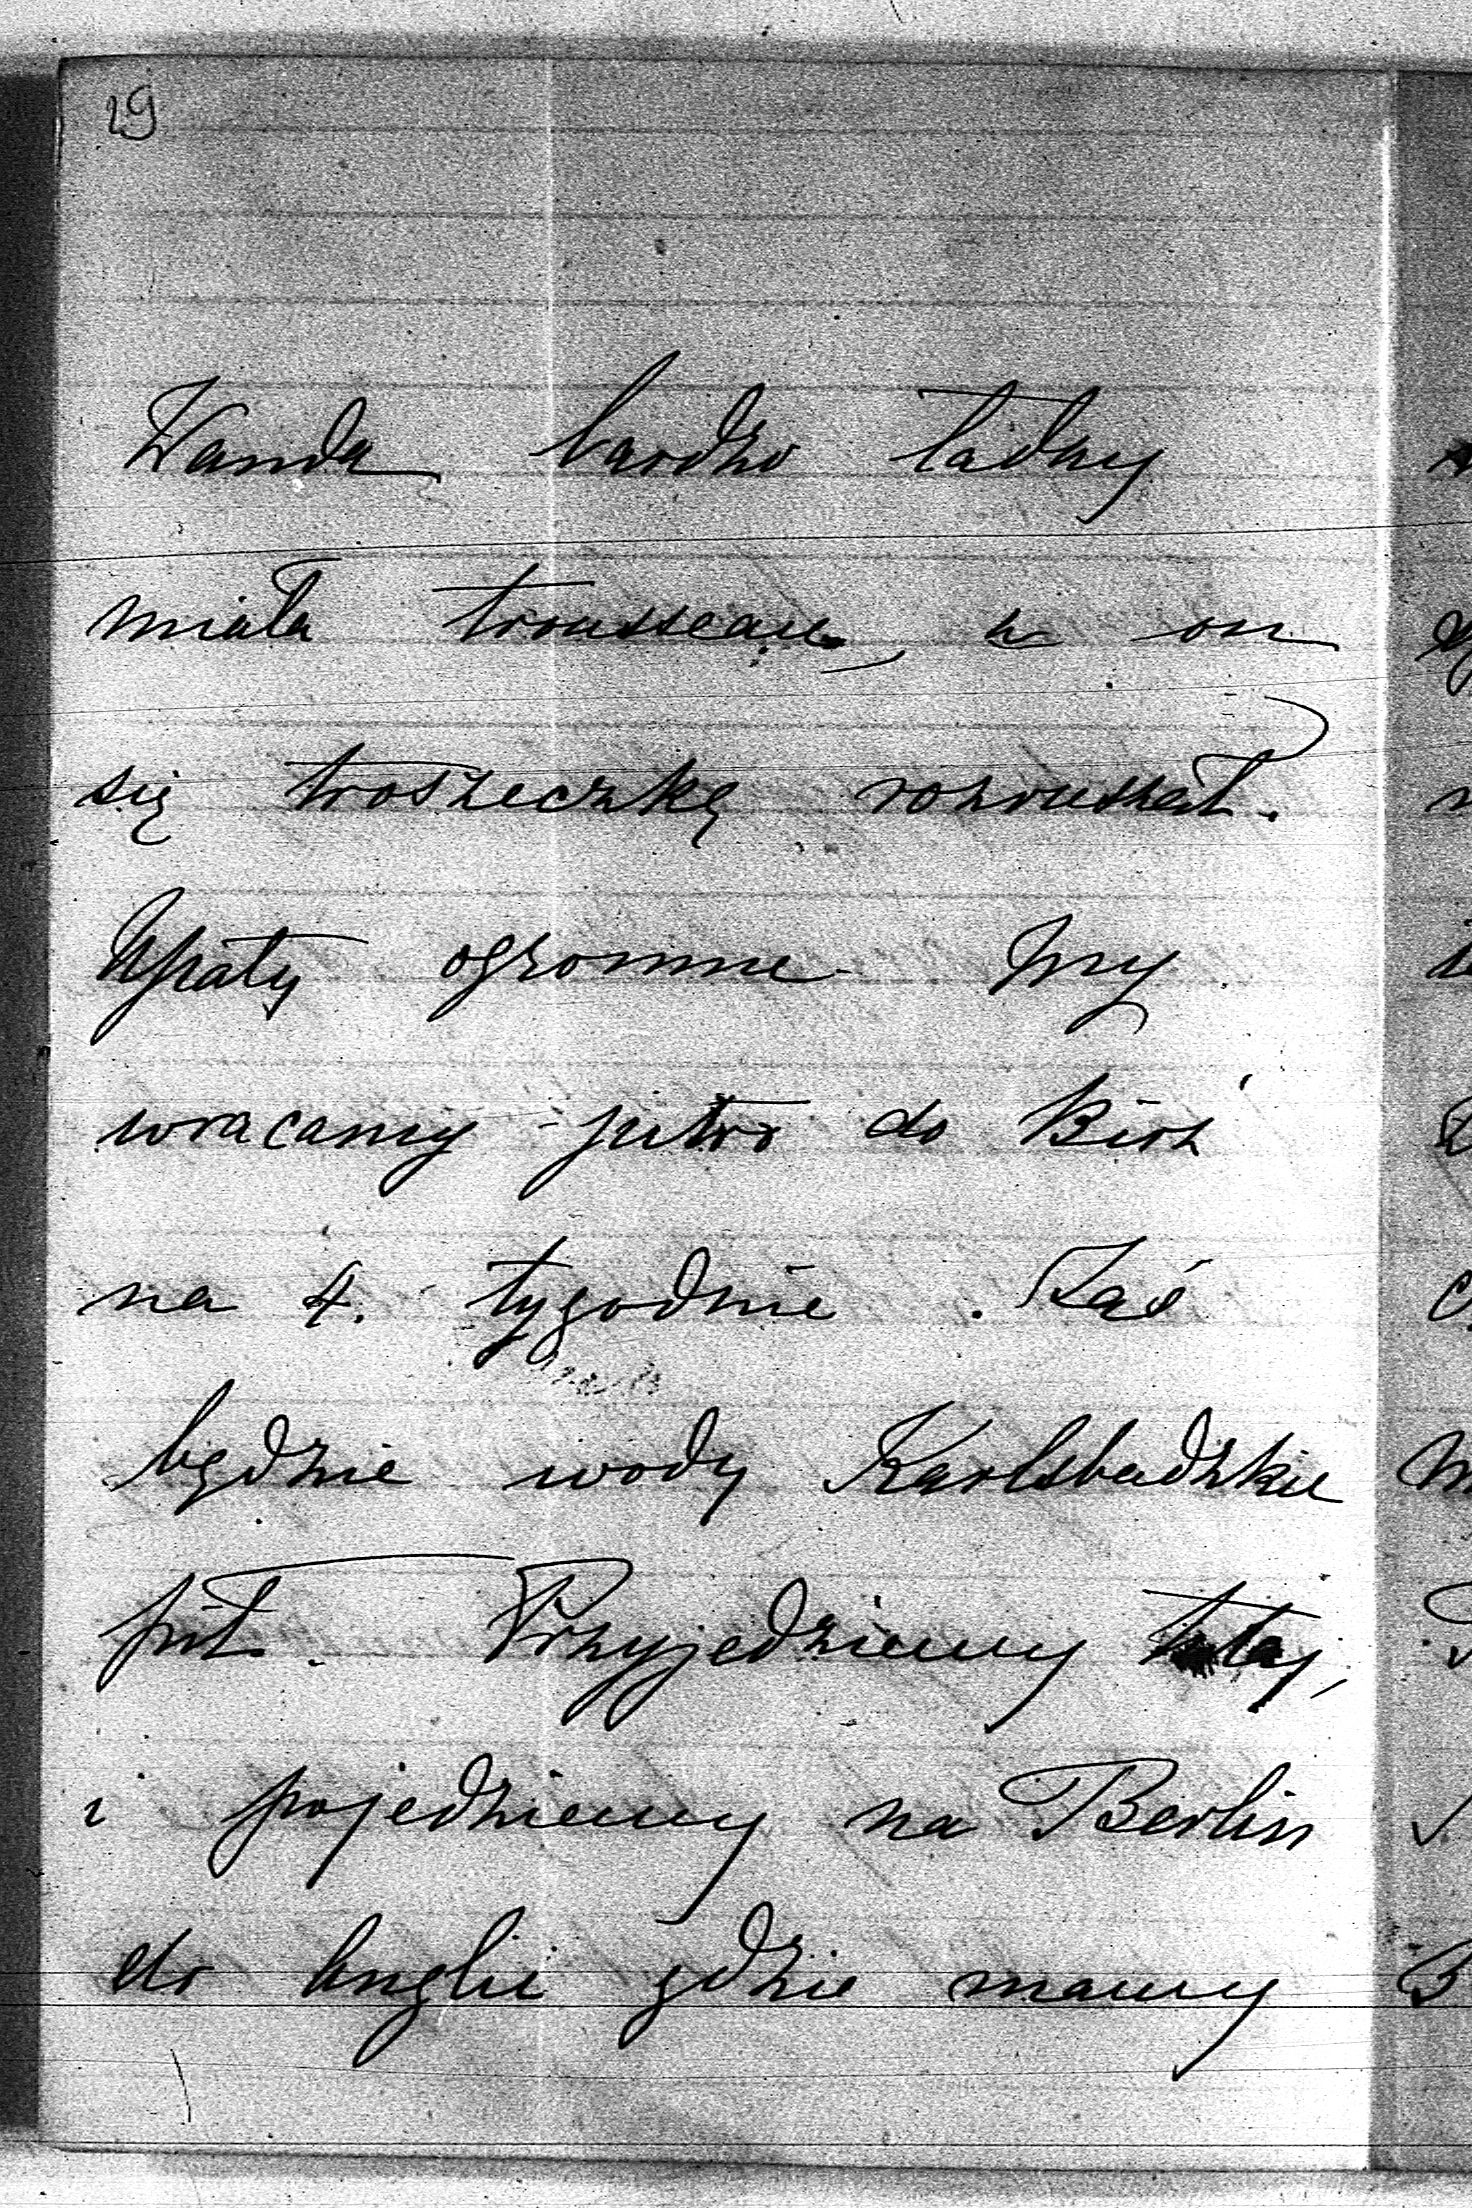 29
Wanda bardzo ładny
miała trousseau, a on
się troszeczkę rozruszał.
Upały ogromne. My
wracamy jutro do Birż
na 4. tygodnie. Jaś
będzie wody Karlsbadzkie
pił. Przyjedziemy tutaj,
i pojedziemy na Berlin
do Anglii gdzie mamy